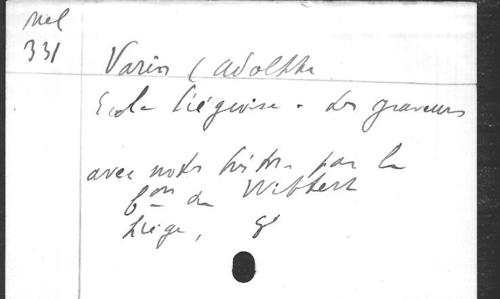 Mel
331
Varin (Adolphe
Ecole liégeoise. des graveurs
avec notes histor. par le
bon de Wittert
Liège, 8°